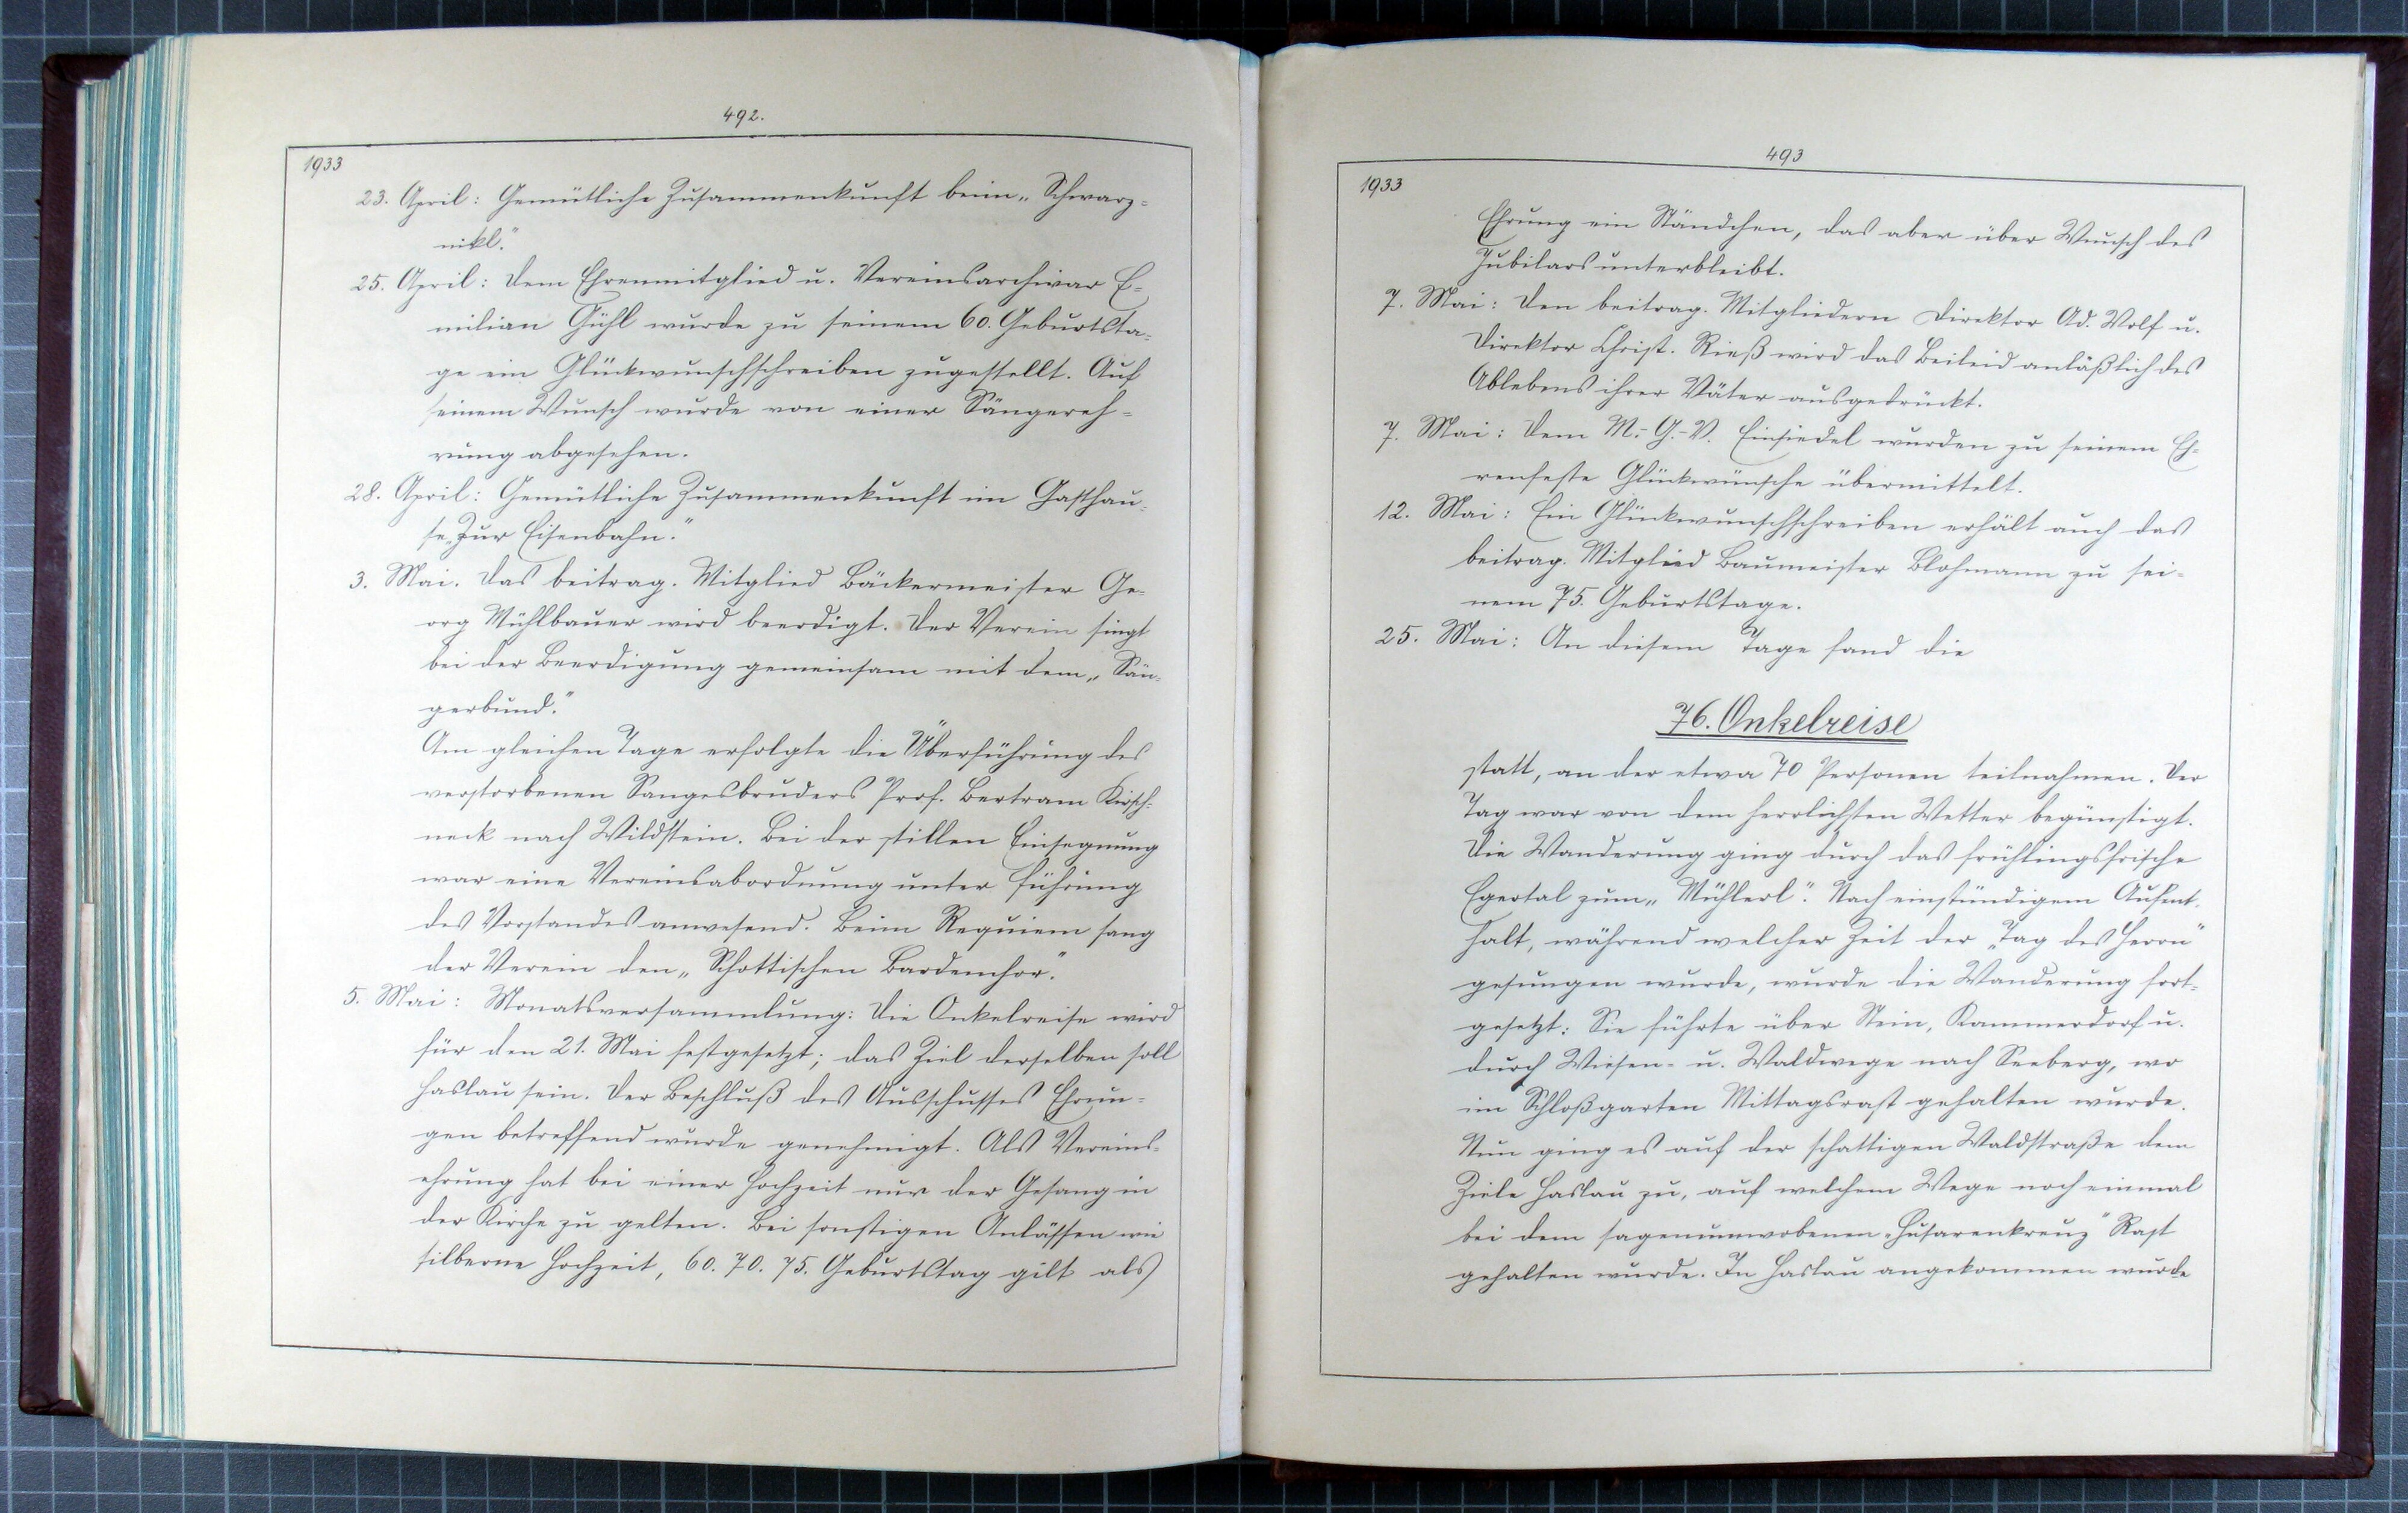 492.
1933
23. April: Gemütliche Zusammenkunft beim „Schwarz-
nikl."
25. April: Dem Ehrenmitglied u. Vereinsarchivar E-
milian Gühl wurde zu seinem 60. Geburtsta-
ge ein Glückwunschschreiben zugestellt. Auf
seinem Wunsch wurde von einer Sängereh-
rung abgesehen.
28. April: Gemütliche Zusammenkunft im Gasthau-
se „Zur Eisenbahn."
3. Mai. Das beitrag. Mitglied Bäckermeister Ge-
org Mühlbauer wird beerdigt. Der Verein singt
bei der Beerdigung gemeinsam mit dem „Sän-
gerbund."
Am gleichen Tage erfolgte die Überführung des
verstorbenen Sangesbruders Prof. Bertram Kirsch-
neck nach Wildstein. Bei der stillen Einsegnung
war eine Vereinsabordnung unter Führung
des Vorstandes anwesend. Beim Requiem sang
der Verein den „Schottischen Bardenchor."
5. Mai: Monatsversammlung: Die Onkelreise wird
für den 21. Mai festgesetzt; das Ziel derselben soll
Haslau sein. Der Beschluß des Ausschusses Ehrun-
gen betreffend wurde genehmigt. Als Vereins-
ehrung hat bei einer Hochzeit nur der Gesang in
der Kirche zu gelten. Bei sonstigen Anlässen wie
silberne Hochzeit, 60. 70. 75. Geburtstag gilt als
493
1933
Ehrung ein Ständchen, das aber über Wunsch des
Jubilars unterbleibt.
7. Mai: Den beitrag. Mitgliedern Direktor Ad. Wolf u.
Direktor Christ. Rieß wird das Beileid anläßlich des
Ablebens ihrer Väter ausgedrückt.
7. Mai: Dem M.-G.-V. Einsiedel wurden zu seinem Eh-
renfeste Glückwünsche übermittelt.
12. Mai: Ein Glückwunschschreiben erhält auch das
beitrag. Mitglied Baumeister Blohmann zu sei-
nem 75. Geburtstage.
25. Mai: An diesem Tage fand die
76. Onkelreise
statt, an der etwa 70 Personen teilnahmen. Der
Tag war von dem herrlichsten Wetter begünstigt.
Die Wanderung ging durch das frühlingsfrische
Egertal zum „Mühlerl". Nach einstündigem Aufent-
halt, während welcher Zeit der „Tag des Herrn"
gesungen wurde, wurde die Wanderung fort-
gesetzt: Sie führte über Stein, Kammerdorf u.
durch Wiesen- u. Waldwege nach Seeberg, wo
im Schloßgarten Mittagsrast gehalten wurde.
Nun ging es auf der schattigen Waldstraße dem
Ziele Haslau zu, auf welchem Wege noch einmal
bei dem sagenumwobenen „Husarenkreuz" Rast
gehalten wurde. In Haslau angekommen wurde